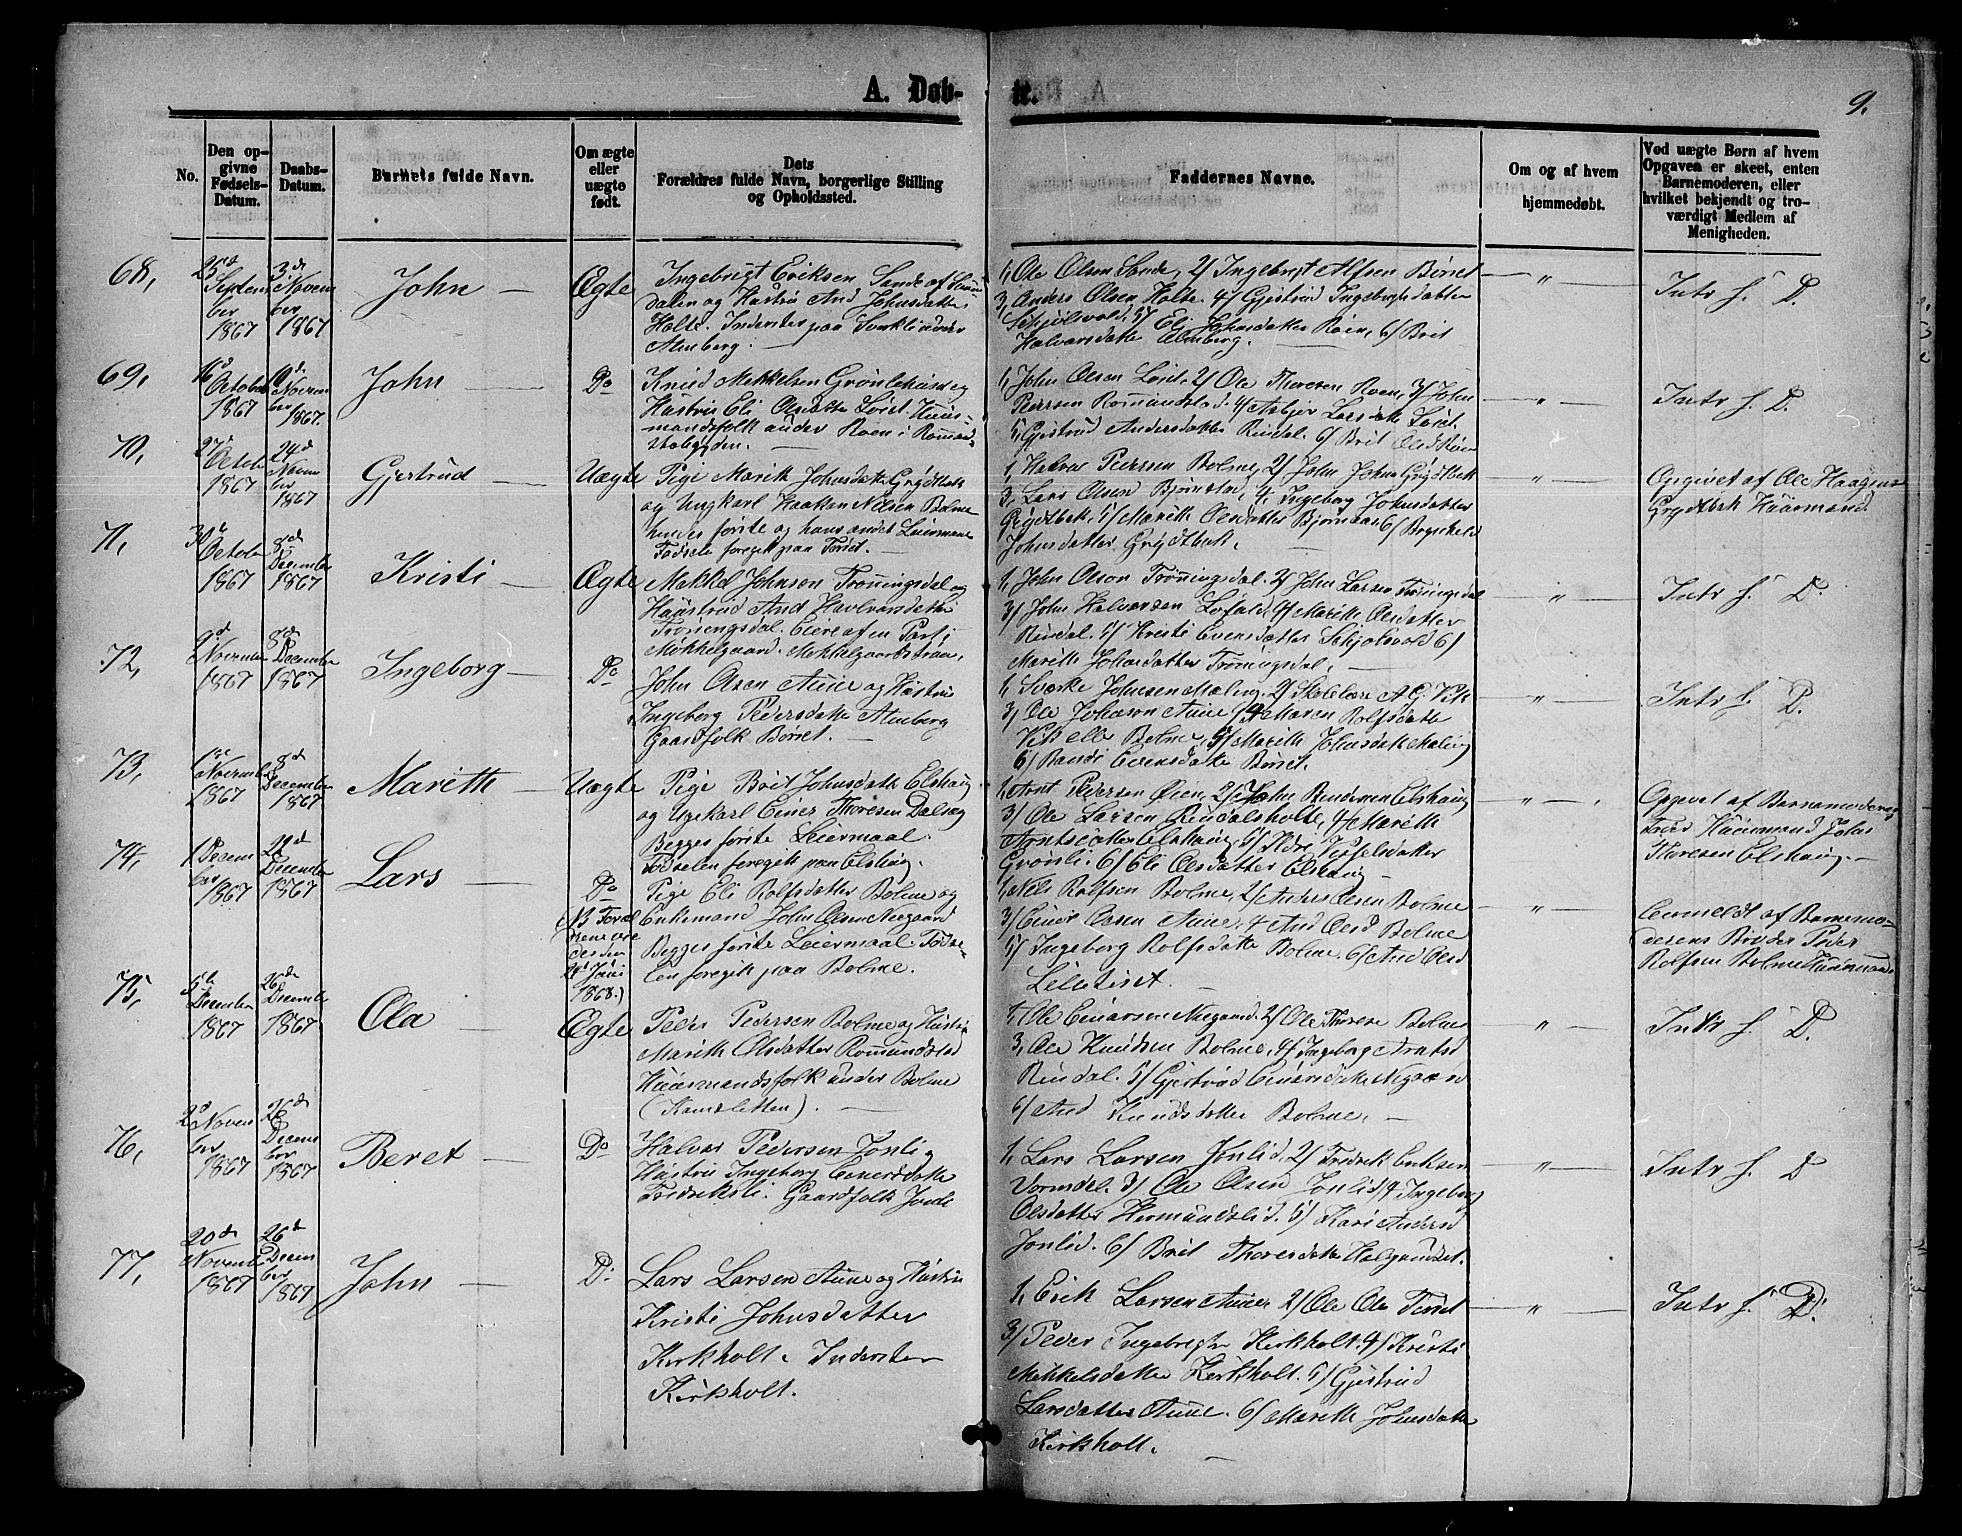 A. Døb-
te.
9.
No.
Den op-
givne
Fødsels-
Datum.
Daabs-
Datum.
Barnets fulde Navn.
Om ægte
eller
uægte
født.
Dets
Forældres fulde Navn, borgerlige Stilling
og Opholdssted.
Faddernes Navne.
Om og af hvem
hjemmedøbt.
Ved uægte Børn af hvem
Opgaven er skeet, enten
Barnemoderen, eller
hvilket bekjendt og tro-
værdigt Medlem af
Menigheden.
68,
25d
Septem
ber
1867
3de
Novem
ber
1867
John —
Ægte
Ingebrigt Eriksen Sande af
dalen og Hustru And Johnsdatter
Holte. Inderster paa
Almberg. —
1, Ole Olsen Sande, 2/ Ingebrigt Alfsen Børset
3, Anders Olsen Holte. 4/ Gjertrud Ingebrigtsdatter
Skjølsvold, 5/ Eli Johnsdatter Roen, 6/ Brit
Halvarsdatter Almberg. —
— " —
Intr f. D.
69,
16d
Octobe
1867
10de
Novem
ber
1867.
John —
Do
Knud Mekkelsen Grønli Husm og
Hustru Eli Olsdatter Løset. Huus-
mandsfolk under Roen i Romund-
stabygden. —
1, John Olsen Løset, 2/ Ole Thoresen Roen, 3/ John
Pedersen Romundstad. 4/ Asbjør Larsdatte Løset.
5, Gjertrud Andersdatter Rindal. 6/ Brit Olsd Roen
— " —
Intr f. D.
70,
27d
Octobe
1867
24d
Novem
ber
1867
Gjertrud —
Uægte
Pige Marith Johnsdatte Grydtbak
og Ungkarl Haaken Nilsen Bolme
hendes første og hans andet Leiermaal
Fødsele foregik paa Torset. —
1, Halvar Pedersen Bolme, 2/ John Johns Grydtbak
3, Lars Olsen Bjørnstad, 4, Ingeborg Johnsdatter
Grydtbak, 5/ Marith Olsdatter Bjørnaas 6/
Johnsdatter Grydtbak.
— " —
Opgivet af Ole Haagens
Grydtbak Huusmand
71,
30d
Octobe
1867
8de
December
1867
Kristi —
Ægte
Mekkel Johnsen Trønningsdal og
Hustrud And Havlvarsdatter
Trønningsdal. Eiere af en Part i
Mekkelgaard.
1, John Olsen Trønningsdal. 2/ John Larsen Trønningsdal
3/ John Halvarsen Løfald, 4/ Marith Olsdatter
Rindal. 5/ Kristi Evensdatter Skjølsvold 6/
Marith Johnsdatter Trønningsdal, —
— " —
Intr f. D.
72,
9d
November
1867
8de
December
1867
Ingeborg —
Do
John Olsen Aune og Hustru
Ingeborg Pedersdatte Almberg
Gaardfolk Børset. —
1, Sverke Johnsen Mæling. 2/ Skolelære A. G. Vik
3/ Ole Johnson Aune, 4/ Maren Rolfsdatte
Vik eller Bolme, 5/ Marith Johnsdatte Mæling
6/ Randi Evensdatte Børset.
— " —
Intr f. D.
73,
1ste
November
1867
8de
December
1867
Marith —
Uægte
Pige Brit Johnsdatte Elshaug
og Ungkarl Einer Thoresen Dalsæg
Begges første Leiermaal.
Fødselen foregik paa Elshaug.
1, Arnt Pedersen Øien, 2/ John Elshaug
3/ Ole Larsen Rindalsholte, 4/ Marith
Arntsdatter Elshaug,
Grønli. 6/ Eli Olsdatter Elshaug —
— " — .
Opgevet af Barnemoderens
Fader Huusmand John
Thoresen Elshaug. —
74,
1 Decem
ber
1867
22de
December
1867
Lars —
Do
(NB Foræl
drene vie
des den
Juni
1868.)
Pige Eli Rolfsdatter Bolme og
Enkemand John Olsen Negaard
Begges første Leiermaal. Fødse-
len foregik paa Bolme.
1, Nils Rolfsen Bolme, 2/ Anders Olsen Bolme
3/ Einer Olsen Aune, 4 And Olsd Bolme
5/ Ingeborg Rolfsdatte Bolme. 6/ And Olsd
Leliteiset. —
— " —
Anmeldt af Barnemo-
derens Broder Peder
Rolfsen Bolme Huusmand
75,
5te
December
1867
26de
December
1867
Ola —
Ægte
Peder Pedersen Bolme og Hustru
Marith Olsdatter Romundstad
Huusmandsfolk under Bolme
(Kamsletten). —
1, Ole Einarsen Negaard. 2/ Ole Thorese Bolme
3, Ole Knudsen Bolme, 4/ Ingeborg Arntsd
Rindal. 5/ Gjertrud Einarsdatte Negaard
6/ And Knudsdatte Bolme, —
— " —
Intr f. D.
76,
2d
Novem
ber
1867
26de
Decem
ber
1867
Beret —
Do
Halvar Pedersen Jonli og
Hustru Ingeborg Einersdatte
Fredriksli. Gaardfolk Jonli
1, Lars Larsen Jonlid, 2/ Fredrik Eriksen
Vormdal. 3/ Ole Olsen Jonlid, 4 Ingeborg
Olsdatter Hermundslid. 5/ Kari Andersd
Jonlid. 6/ Brit Thoresdatte Helgandset.
— " —
Intr f. D
77,
20de
Novemb
1867
26de
Decem
ber
1867
John —
Do
Lars Larsen Aune og Hustru
Kristi Johnsdatter
Kirkholt. Inderster
Kirkholt.
1, Erik Larsen Aune, 2/ Ole Ols Torset
3/ Peder Ingebregtse Kirkholt. 4/ Kristi
Mekkelsdatter Kirkholt. 5/ Gjertrud
Larsdatter Aune. 6/ Marith Johnsdatte
Kirkholt. —
— " —
Intr f. D.